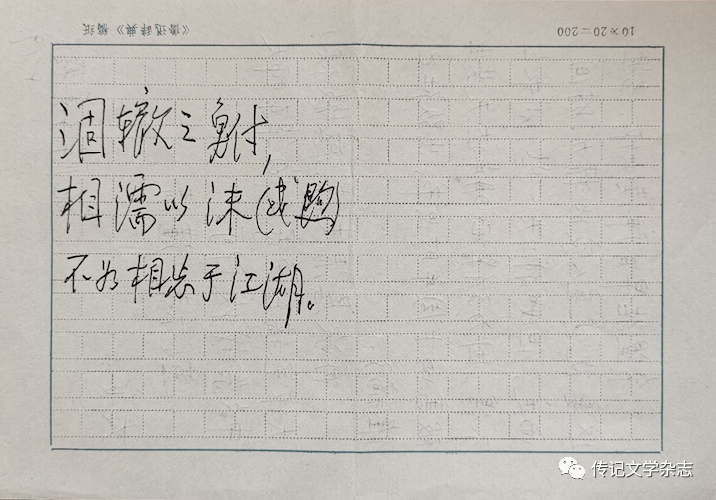 10×20=200
涸辙之鲋，
相濡以沫（或煦）
不如相忘于江湖。
传记文学杂志